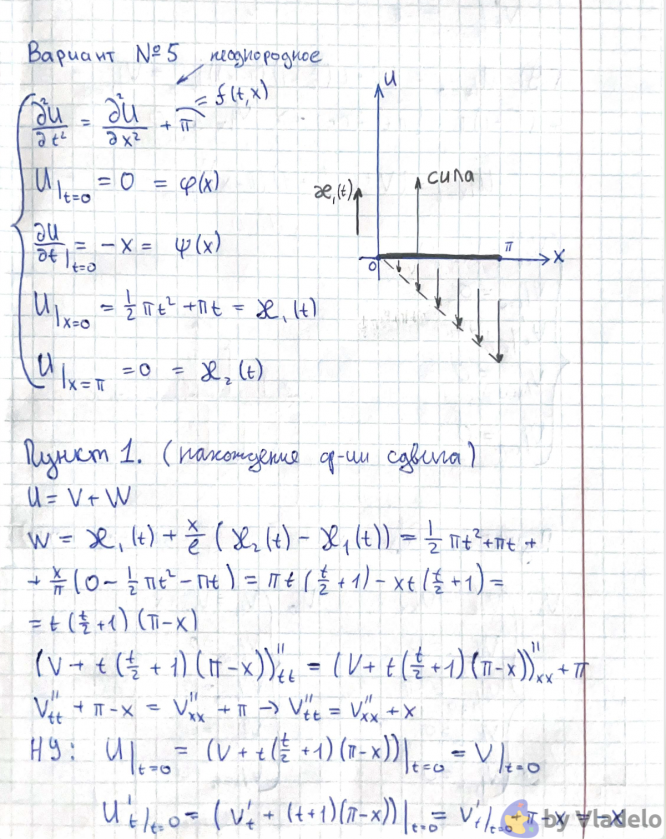 Вариант №5 неоднородное
∂²U/∂t² = ∂²U/∂x² + π = f(t,x)
U|t=0 = 0 = φ(x)
∂U/∂t|t=0 = -x = ψ(x)
U|x=0 = 1/2 πt² + πt = æ₁(t)
U|x=π = 0 = æ₂(t)
U
æ₁(t)
сила
π
0
x
Пункт 1. (нахождение ф-ии сдвига)
U = V + W
W = æ₁(t) + x/ℓ (æ₂(t) - æ₁(t)) = 1/2 πt² + πt +
+ x/π (0 - 1/2 πt² - πt) = πt (t/2 + 1) - xt (t/2 + 1) =
= t (t/2 + 1) (π - x)
(V + t(t/2 + 1)(π - x))''tt = (V + t(t/2 + 1)(π - x))''xx + π
V''tt + π - x = V''xx + π → V''tt = V''xx + x
НУ: U|t=0 = (V + t(t/2 + 1)(π - x))|t=0 = V|t=0
U't|t=0 = (V't + (t+1)(π - x))|t=0 = V't|t=0 + π - x = -x
by Vladelo